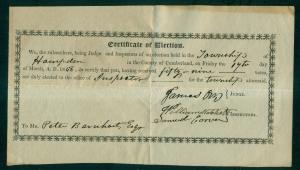 Certificate of Election.
We, the subscribers, being Judge and Inspectors of an election held in the Township of
Hampden in the County of Cumberland, on Friday the day
of March, A. D. do certify that you, having received fifty nine votes,
was duly elected to the office of Inspector for the township aforesaid.
James JUDGE.
INSPECTORS.
Samuel
To Mr. Peter Barnhart, Esqr